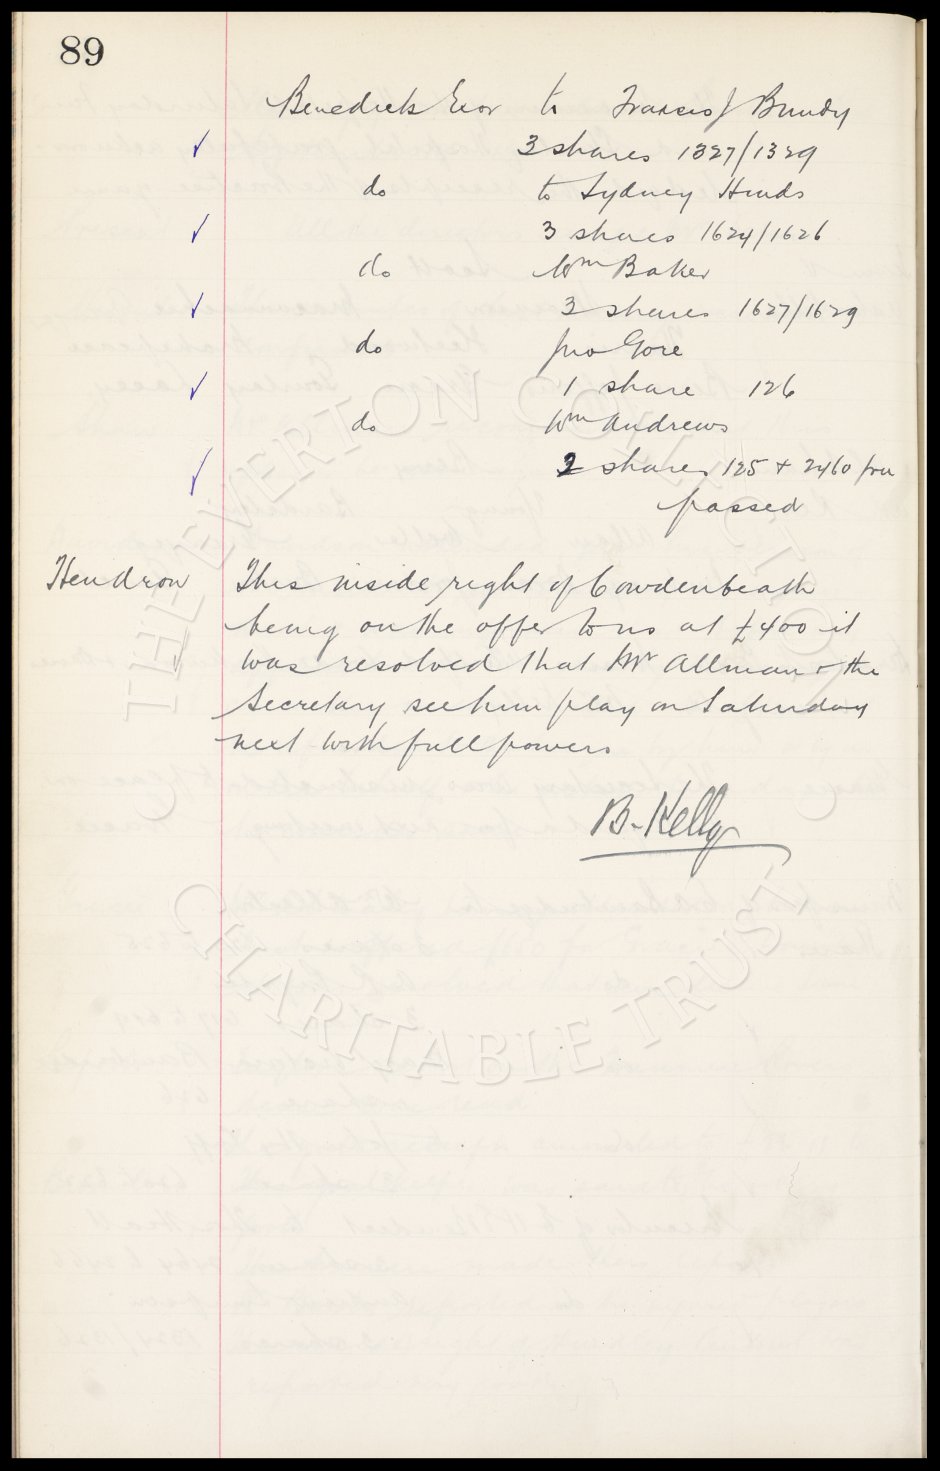 89
Benedicts Exor to Francis J Bundy
3 shares 1327/1329
do to Sydney Hinds
3 shares 1624/1626
do Wm Baker
3 shares 1627/1629
do Jno Gore
1 share 126
do Wm Andrews
2 shares 125 + 2460
passed
Hendron This inside right of Cowdenbeath
being on the offer to us at £400 it
was resolved that Mr Allman & the
Secretary see him play on Saturday
next with full powers
B. Kelly
THE EVERTON COLLECTION
CHARITABLE TRUST